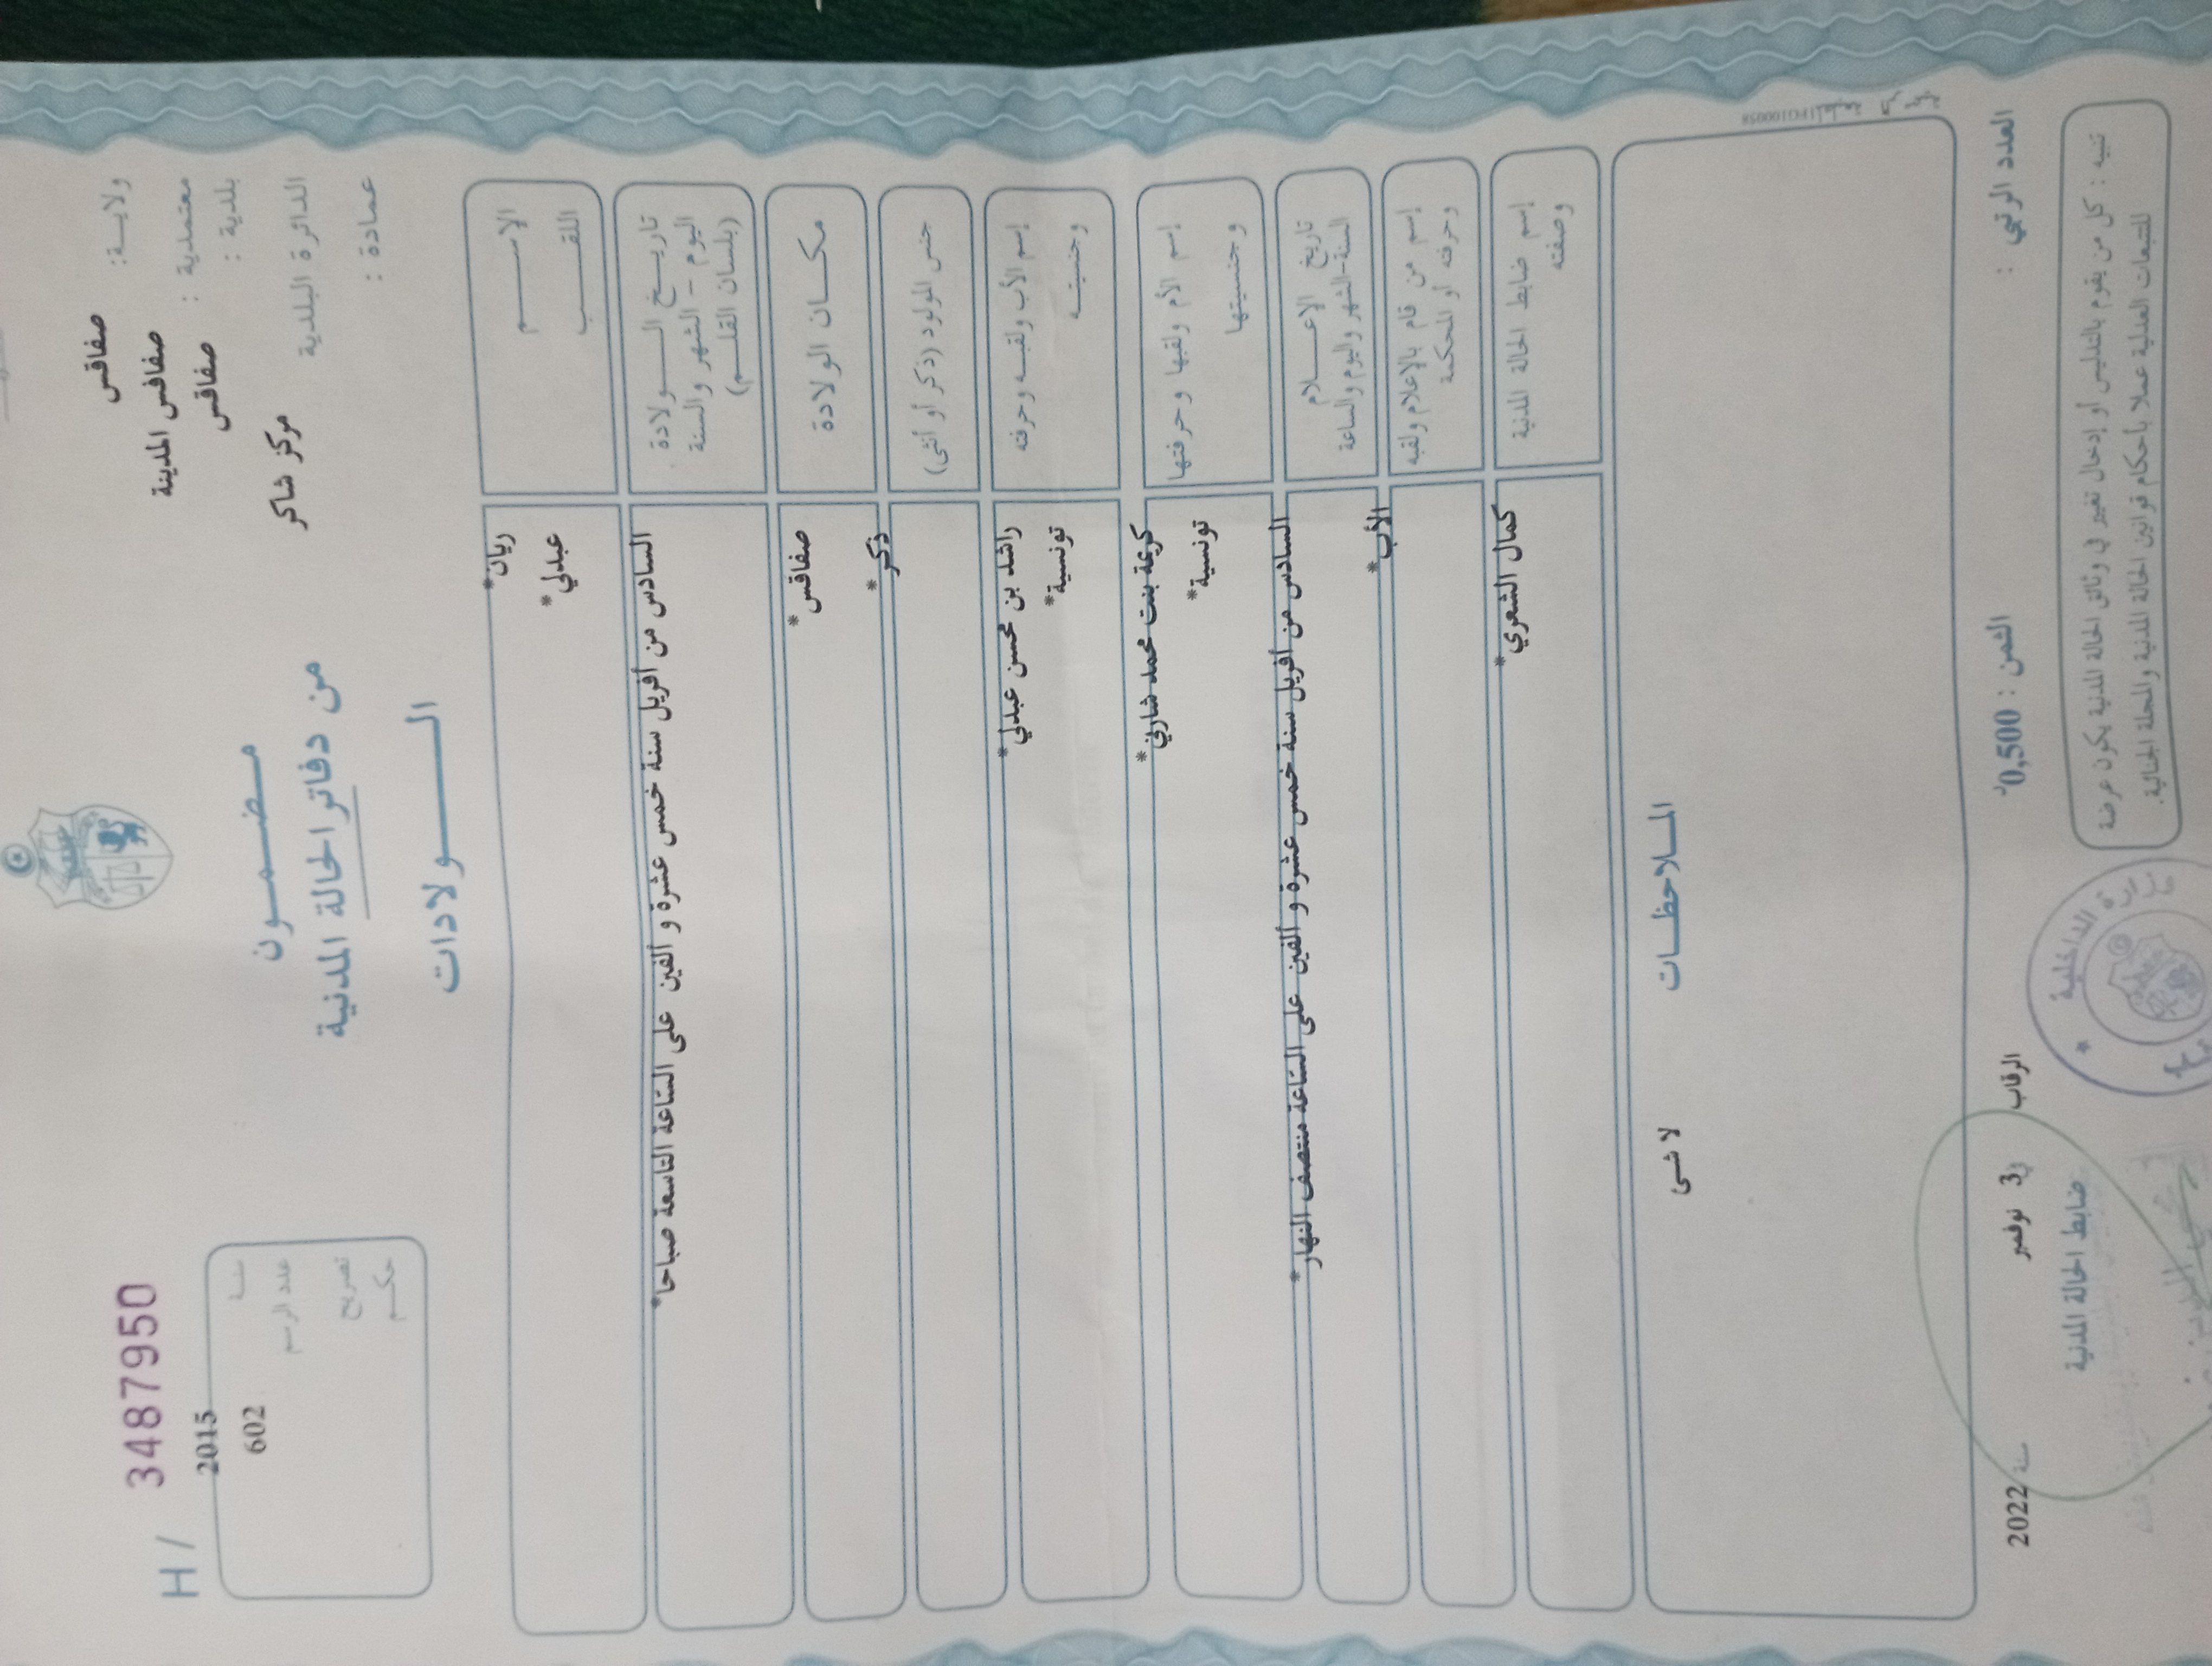 ولايــة: صفاقس
معتمدية : صفاقس المدينة
بلدية : صفاقس
الدائرة البلدية مركز شاكر
عمادة :
مـضـمـــون
من دفاتر الحالة المدنية
الــــــولادات
H / 34877950
سنــة 2015
عدد الرسم 602
تصريح
حكــم
الإســـــم ريان*
اللقـــــب عبدلي*
تاريــخ الـــــولادة السادس من أفريل سنة خمس عشرة و ألفين على الساعة التاسعة صباحا*
اليوم – الشهر والسنة
(بلسان القلـــم)
مكـــان الولادة صفاقس*
جنس المولود (ذكر أو أنثى) ذكر*
إسم الأب ولقبــه وحرفته راشد بن محسن عبدلي*
وجنسيتــه تونسية*
إسم الأم ولقبها وحرفتها كريمة بنت محمد شارني*
وجنسيتها تونسية*
تاريخ الإعــــلام السادس من أفريل سنة خمس عشرة و ألفين على الساعة منتصف النهار*
السنة-الشهر واليوم والساعة
إسم من قام بالإعلام ولقبه الأب*
وحرفته أو المحكمة
إسم ضابط الحالة المدنية كمال الشعري*
وصفته
المــلاحظــات
لا شئ
العدد الرتبي :
الثمن : 0,500د
الرقاب في 3 نوفمبر سنة 2022
تنبيه : كل من يقوم بالتدليس أو إدخال تغيير في وثائق الحالة المدنية يكون عرضة
للتتبعات العدلية عملا بأحكام قوانين الحالة المدنية والمجلة الجنائية.
ضابط الحالة المدنية
وزارة الداخلية